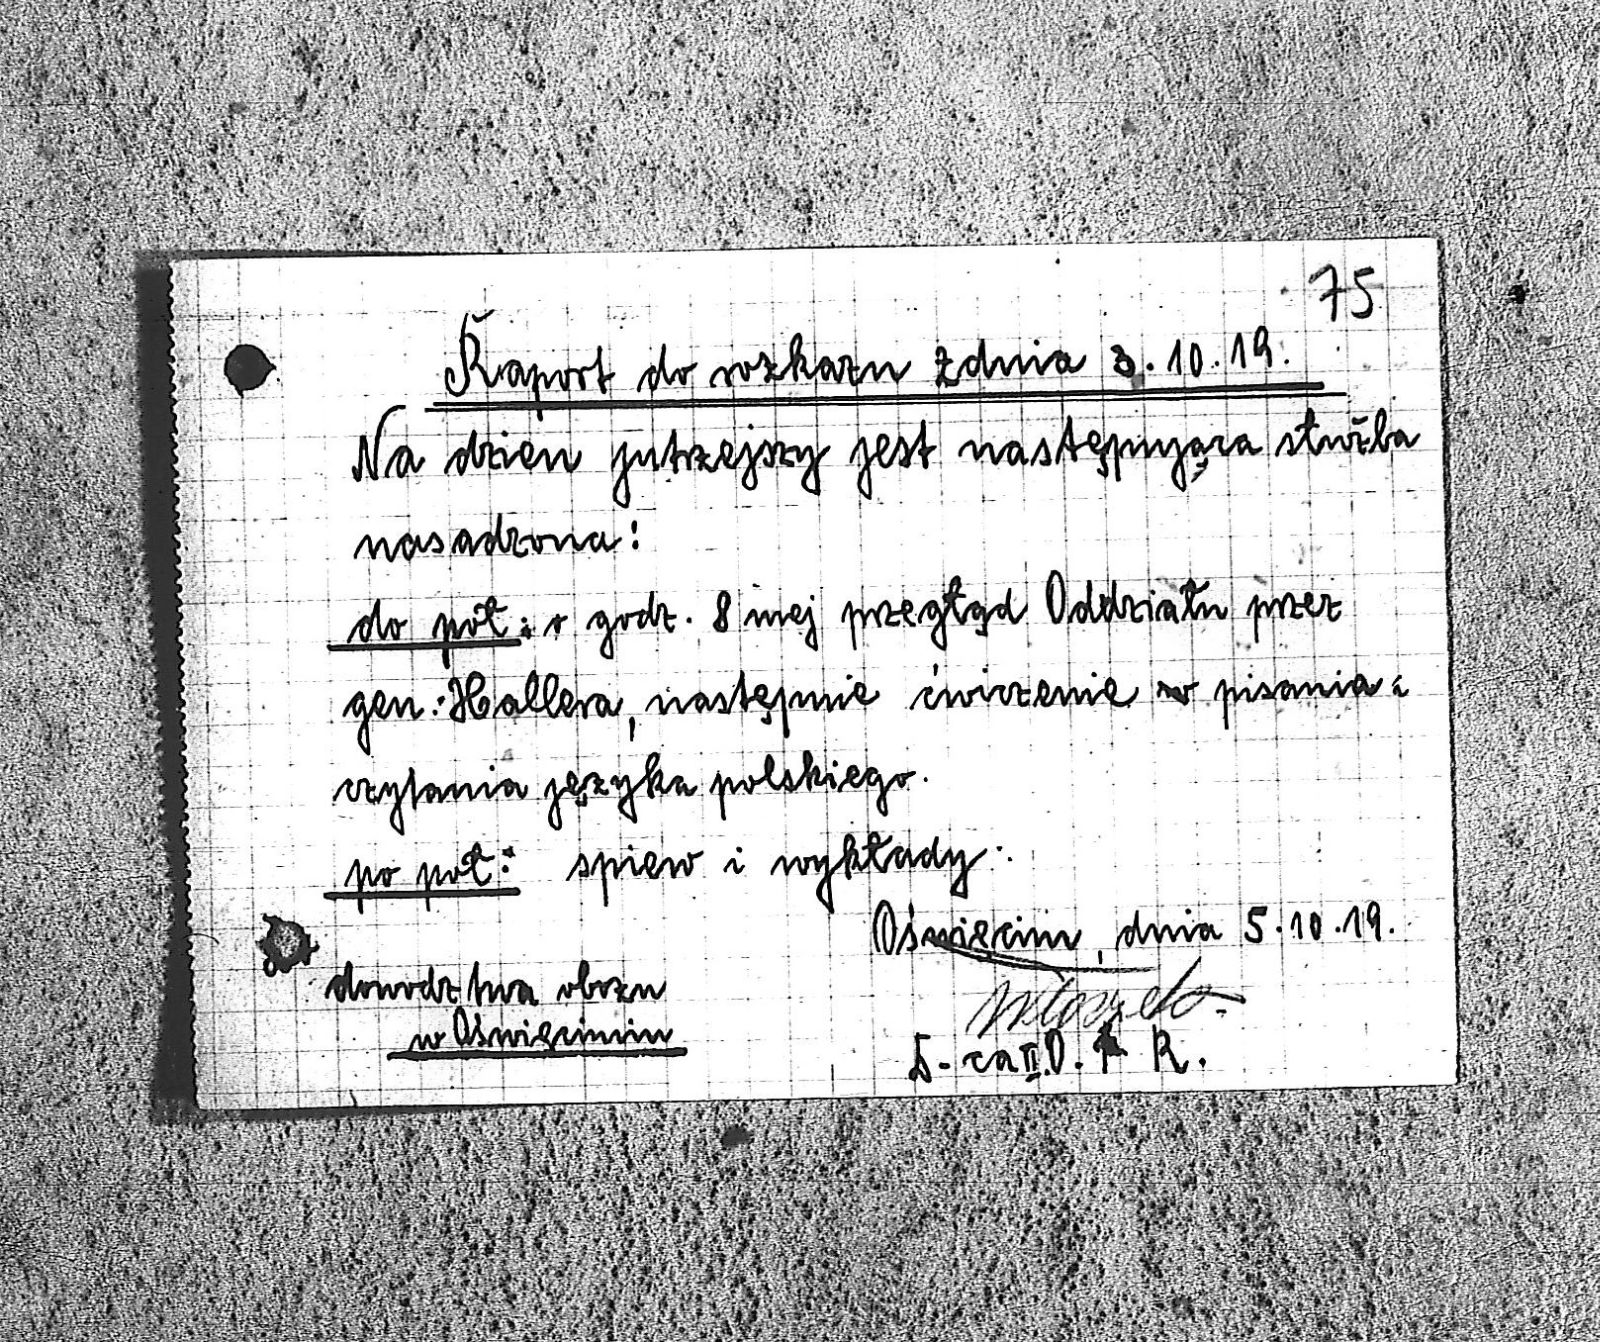 75
Raport do rozkazu z dnia 3.10.19.
Na dzien jutrzejszy jest następująca służba
nasadzona:
do poł: o godz. 8 mej przegłąd Oddziału przez
gen: Hallera, następnie ćwiczenie w pisania i
czytania języka polskiego.
po poł: spiew i wykłady.
Oświęcim, dnia 5.10.19.
dowodztwa obozu
w Oświęcimiu
D-ca II. O. R.